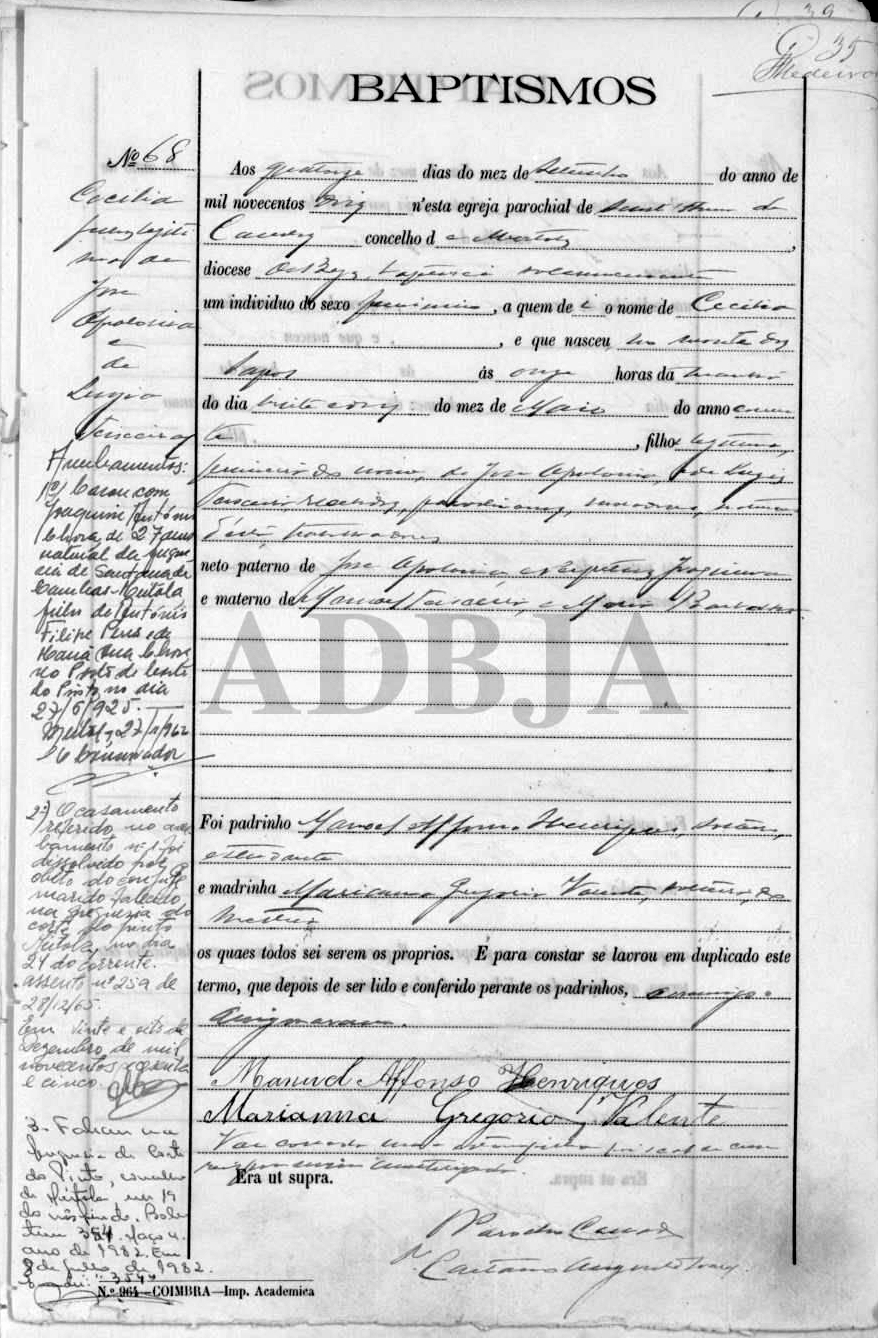 39
35
Medeiros
BAPTISMOS
Nº 68
Cecilia
filha legiti
ma de
José
Apolonia
e
de
Luzia
Teixeira
Averbamentos:
Nº 1 Casou com
Joaquim António
de 27 anos
natural da fregue
sia de Santana de
Cambas - Mértola
filho de António
Filipe e de
Maria
no dia
27/6/925.
Mértola, 27/1/962
O Conservador
2º O casamento
referido no aver
bamento nº 1 foi
dissolvido por
óbito do conjuge
marido falecido
na freguesia de
Corte do Pinto
Mértola, no dia
24 do corrente.
assento nº 259 de
28/12/65.
Em vinte e oito de
Dezembro de mil
novecentos sessenta
e cinco.
3- Faleceu na
freguesia de Corte
do Pinto, concelho
de Mértola, em 19
do mês findo. Bole
tim 354. Maço 4.
ano de 1982. Em
8 de Julho de 1982.
Aos quatorze dias do mez de Setembro do anno de
mil novecentos dois n'esta egreja parochial de Sant'Anna de
Cambas concelho de Mertola,
diocese de Beja, baptisei solemnemente
um individuo do sexo feminino, a quem dei o nome de Cecilia
, e que nasceu no monte dos
Sapos ás onze horas da manhã
do dia vinte e dois do mez de Maio do anno corren
te, filha legitima,
primeira do nome, de José Apolonia, e de Luzia
Teixeira recebidos, parochianos, moradores, no
dito, trabalhadores
neto paterno de José Apolonia e
e materno de Manoel Teixeira, e Maria
ADBJA
Foi padrinho Manoel Affonso Henriques, solteiro,
estudante
e madrinha Marianna Gregorio Valente, solteira, de
Mertola
os quaes todos sei serem os proprios. E para constar se lavrou em duplicado este
termo, que depois de ser lido e conferido perante os padrinhos, commigo
assignaram.
Manuel Affonso Henriques
Marianna Gregorio Valente
Vai collada uma estampilha fiscal de cem
reis inutilizada.
Era ut supra.
O Parocho
Caetano Augusto
N.º 964—COIMBRA—Imp. Academica